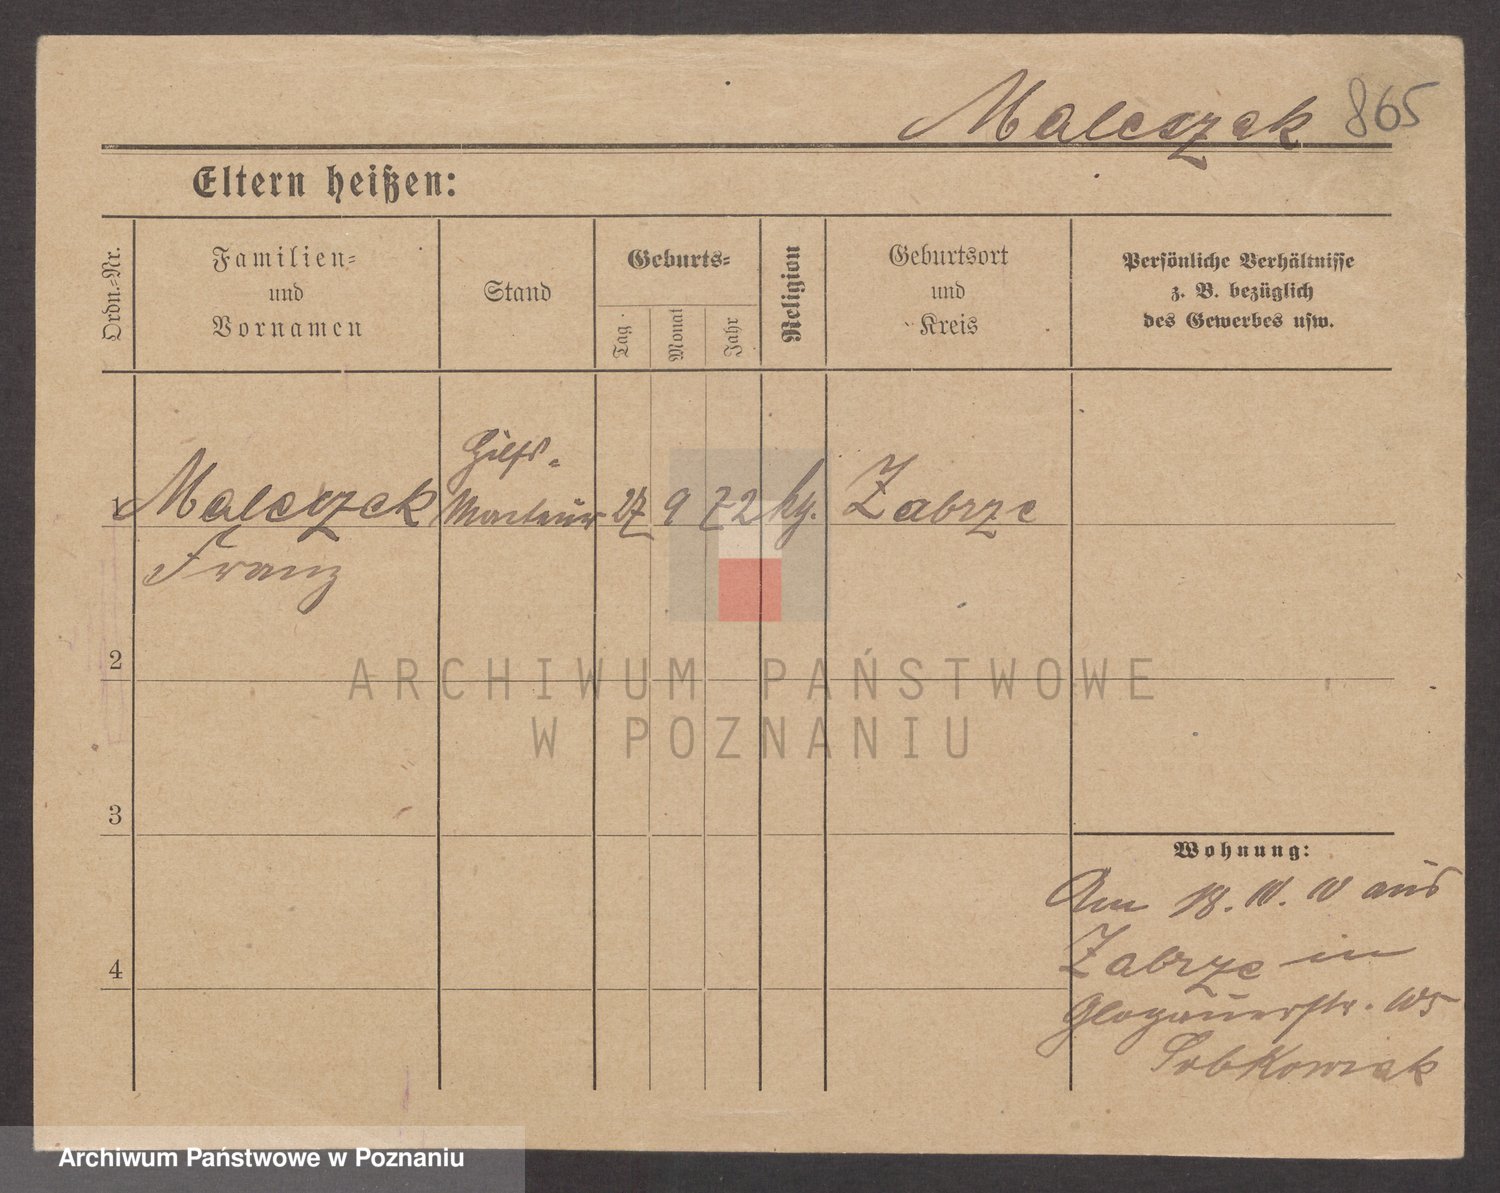 Maleszek 865
Eltern heißen:
Ordn.-Nr.
Familien-
und
Vornamen
Stand
Geburts-
Tag
Monat
Jahr
Religion
Geburtsort
und
Kreis
Persönliche Verhältnisse
z. B. bezüglich
des Gewerbes usw.
Hilfs-
1 Maleszek Monteur 27 9 72 kg. Zabrze
Franz
2
3
4
Wohnung:
Am 18. 10. 10 aus
Zabrze in
Glogauerstr. 105
Sobkowiak
ARCHIWUM PAŃSTWOWE
W POZNANIU
Archiwum Państwowe w Poznaniu